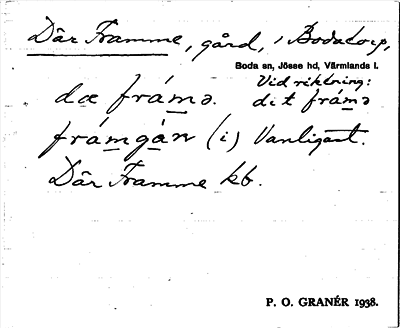 Där Framme, gård, i Bodatorp,
Boda sn, Jösse hd, Värmlands l.
Vid riktning:
dæ frámə. dit frámə
frámgán (i) Vanligast.
Där Framme kb.
P. O. GRANÉR 1938.